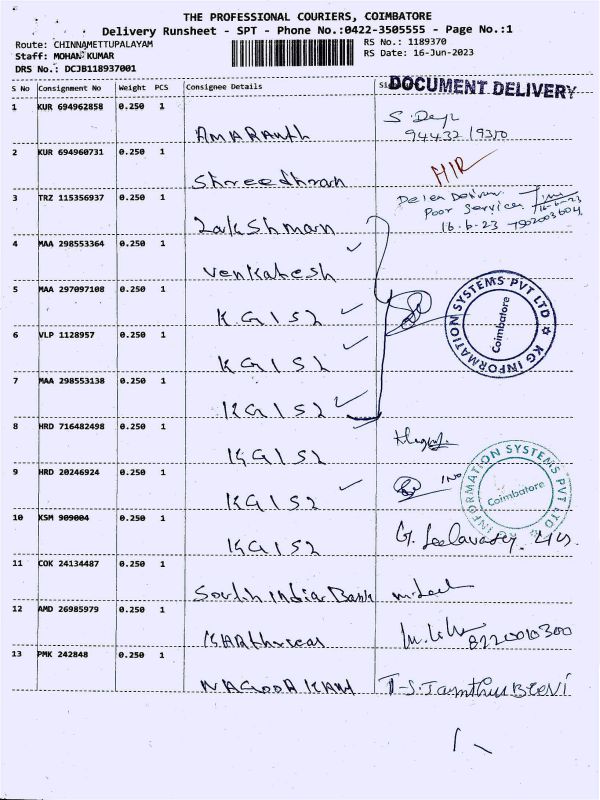 THE PROFESSIONAL COURIERS, COIMBATORE
Delivery Runsheet - SPT - Phone No.:0422-3505555 - Page No.:1
Route: CHINNAMETTUPALAYAM RS No.: 1189370
Staff: MOHAN KUMAR RS Date: 16-Jun-2023
DRS No.: DCJB118937001
S No Consignment No Weight PCS Consignee Details
DOCUMENT DELIVERY
1 KUR 694962858 0.250 1 AMARAnth
94432 / 9350
2 KUR 694960731 0.250 1 Shreedhran
3 TRZ 115356937 0.250 1 Lakshman
Poor Service
16.6.23
4 MAA 298553364 0.250 1 Venkatesh
5 MAA 297097108 0.250 1 KGISL
6 VLP 1128957 0.250 1 KGISL
KG INFORMATION SYSTEMS PVT LTD
Coimbatore
7 MAA 298553138 0.250 1 KGISL
8 HRD 716482498 0.250 1 KGISL
9 HRD 20246924 0.250 1 KGISL
KG INFORMATION SYSTEMS PVT LTD
Coimbatore
10 KSM 909004 0.250 1 KGISL
11 COK 24134487 0.250 1 South India Bank
12 AMD 26985979 0.250 1
8220010300
13 PMK 242848 0.250 1